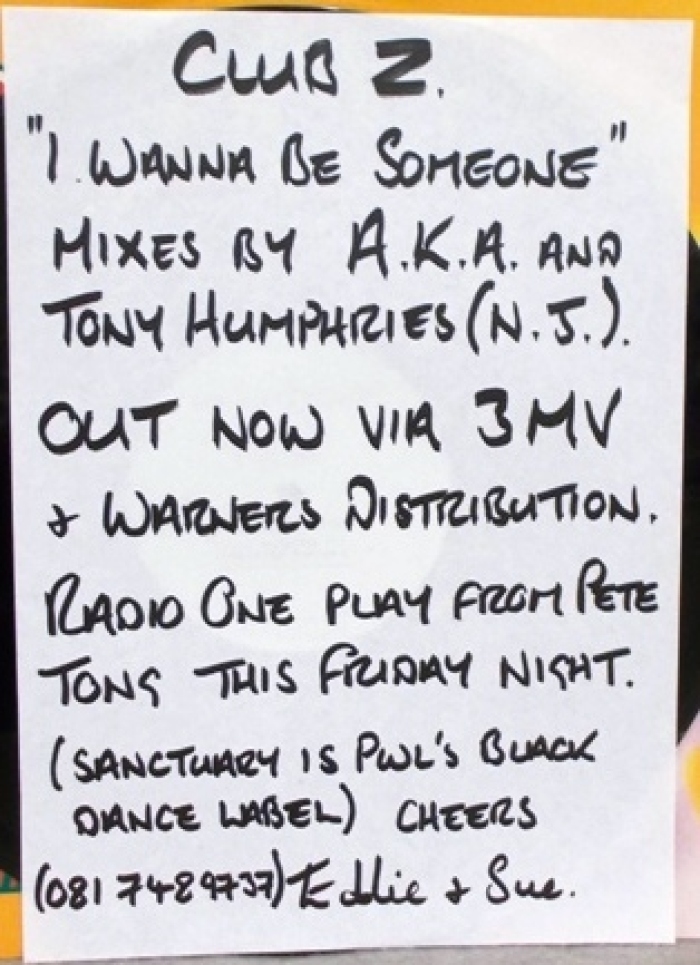 CLUB Z.
"I WANNA BE SOMEONE"
MIXES BY A.K.A. AND
TONY HUMPHRIES (N.J.).
OUT NOW VIA 3MV
& WARNERS DISTRIBUTION.
RADIO ONE PLAY FROM PETE
TONG THIS FRIDAY NIGHT.
(SANCTUARY IS PWL'S BLACK
DANCE LABEL) CHEERS
(081 748 9737) Eddie & Sue.